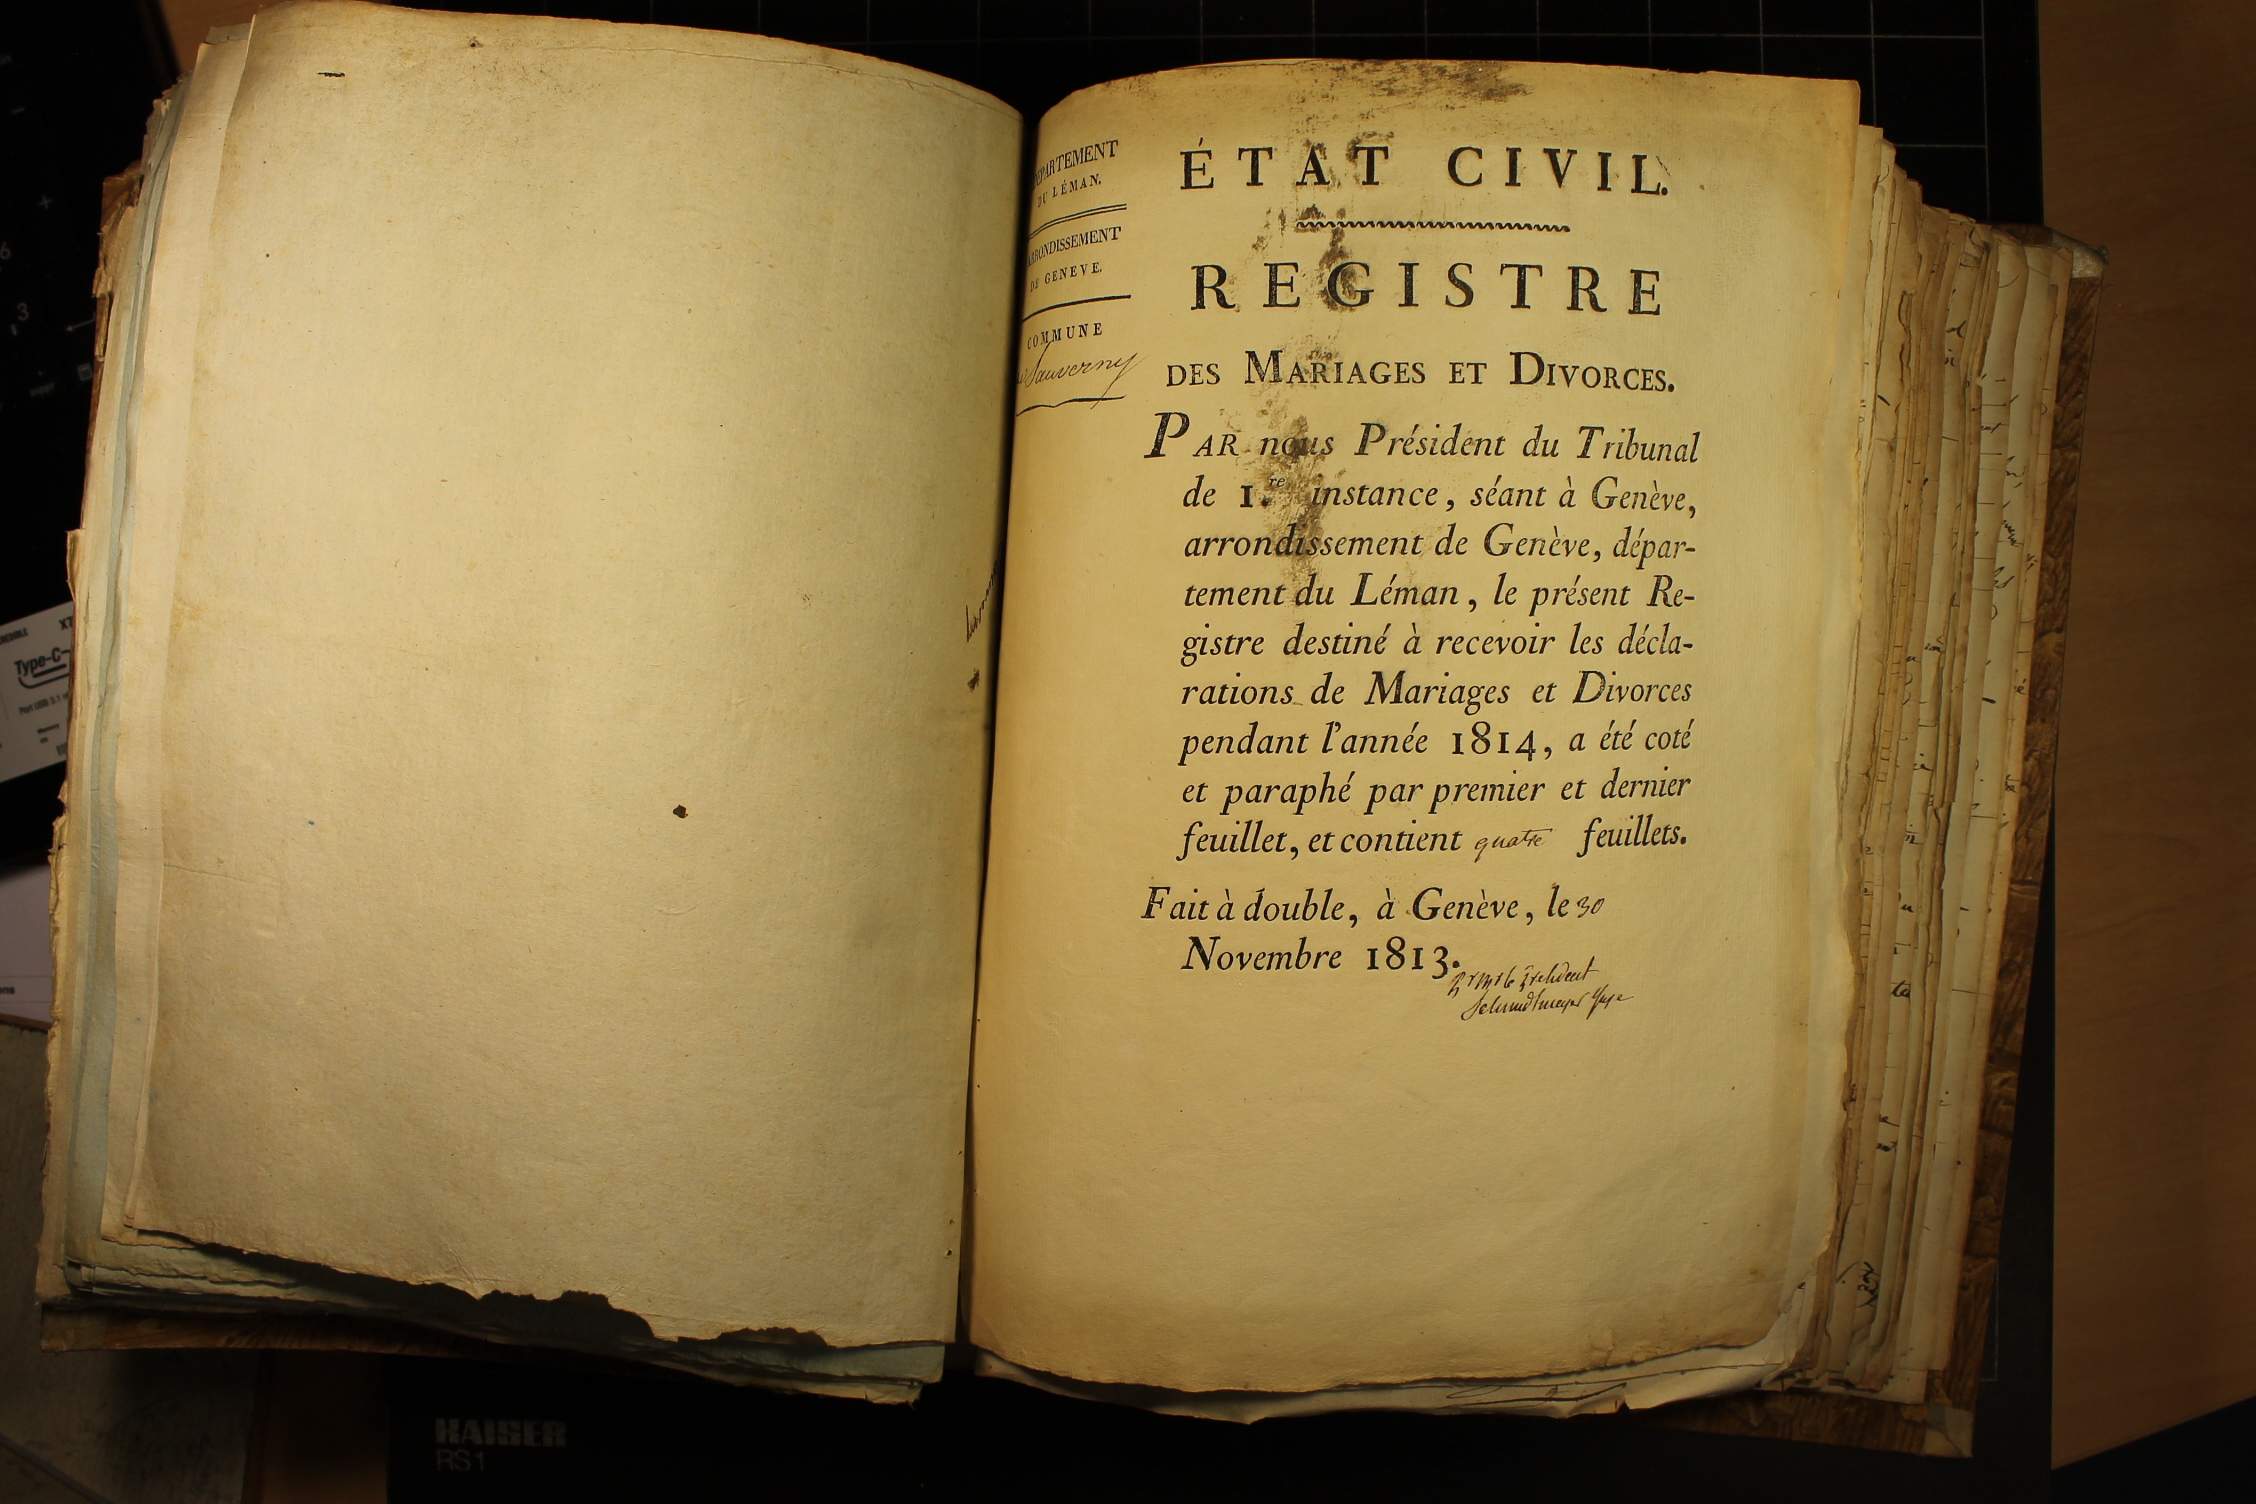 DÉPARTEMENT
DU LÉMAN.
ARRONDISSEMENT
DE GENEVE.
COMMUNE
Sauverny
ÉTAT CIVIL.
REGISTRE
DES MARIAGES ET DIVORCES.
PAR nous Président du Tribunal
de 1.re instance, séant à Genève,
arrondissement de Genève, dépar-
tement du Léman, le présent Re-
gistre destiné à recevoir les décla-
rations de Mariages et Divorces
pendant l'année 1814, a été coté
et paraphé par premier et dernier
feuillet, et contient quatre feuillets.
Fait à double, à Genève, le 30
Novembre 1813.
Schmidtmeyer
Type-C
KAISER
RS1